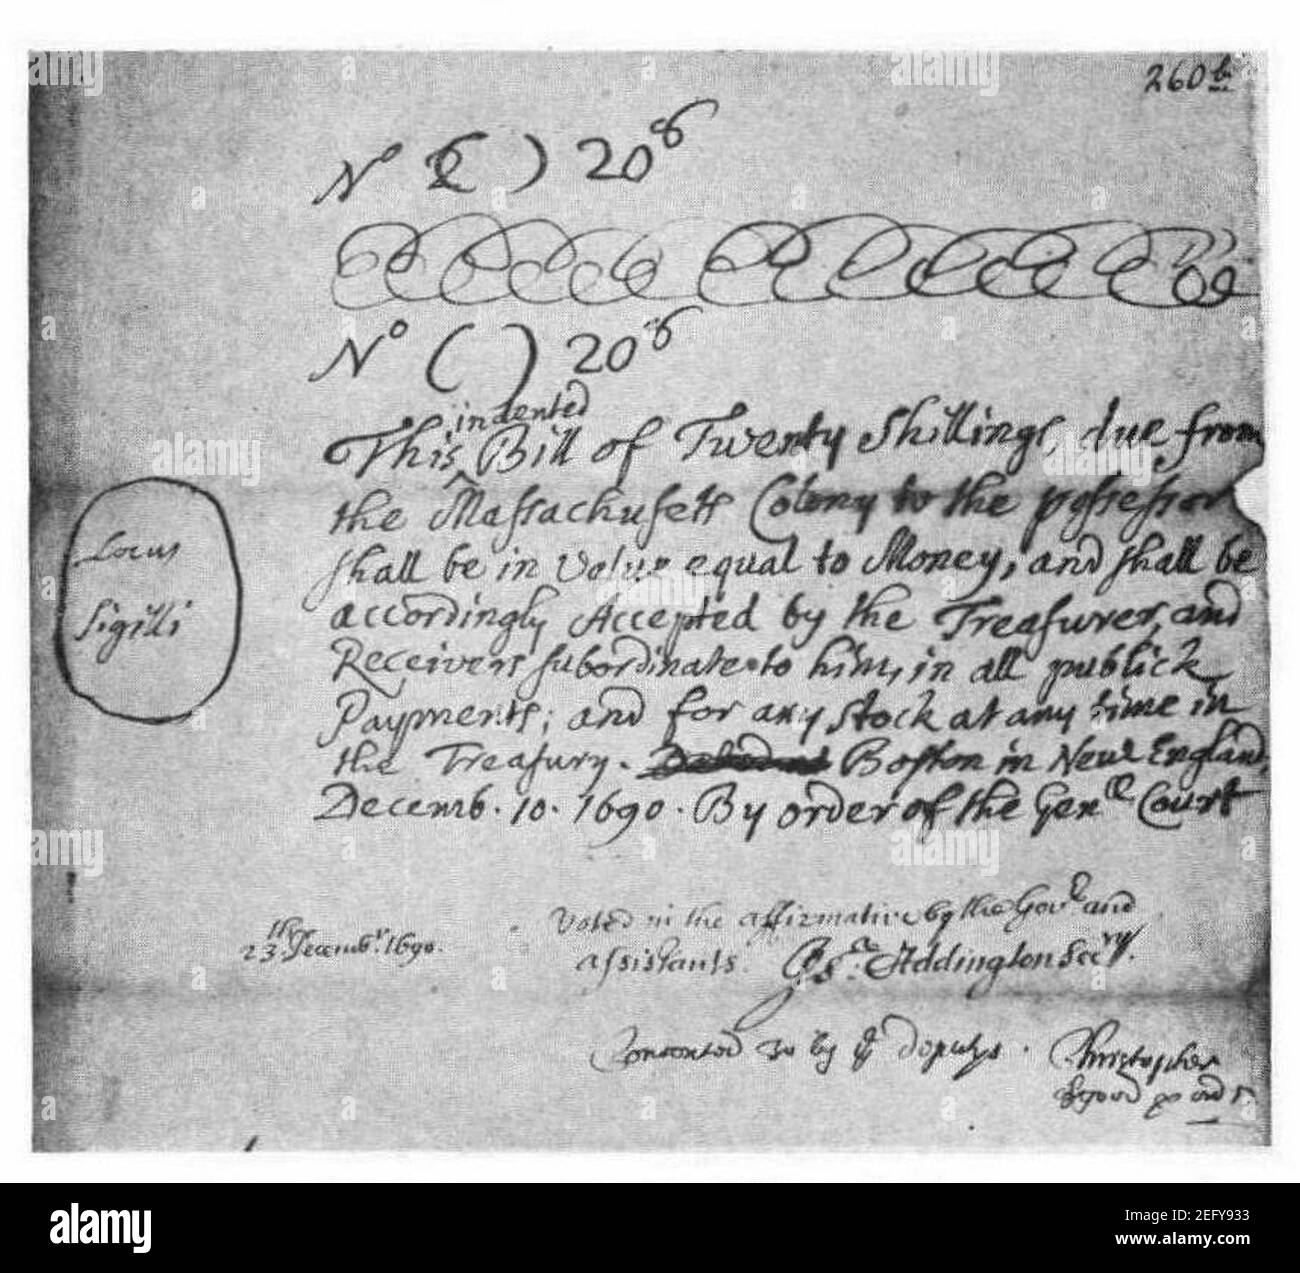 260 b
No ( ) 20s
No ( ) 20s
indented
This Bill of Twenty Shillings, due from
the Massachusetts Colony to the possessor
shall be in value equal to Money, and shall be
accordingly Accepted by the Treasurer, and
Receivers subordinate to him, in all publick
Payments; and for any stock at any time in
the Treasury. Boston in New England,
Decemb. 10. 1690. By order of the Genll Court
Locus
Sigilli
23th Decembr 1690.
Voted in the affirmative by the Govr and
assistants. Jsa Addington Secry.
Consented to by ye deputys. Christopher
alamy
Image ID: 2EFY933
www.alamy.com